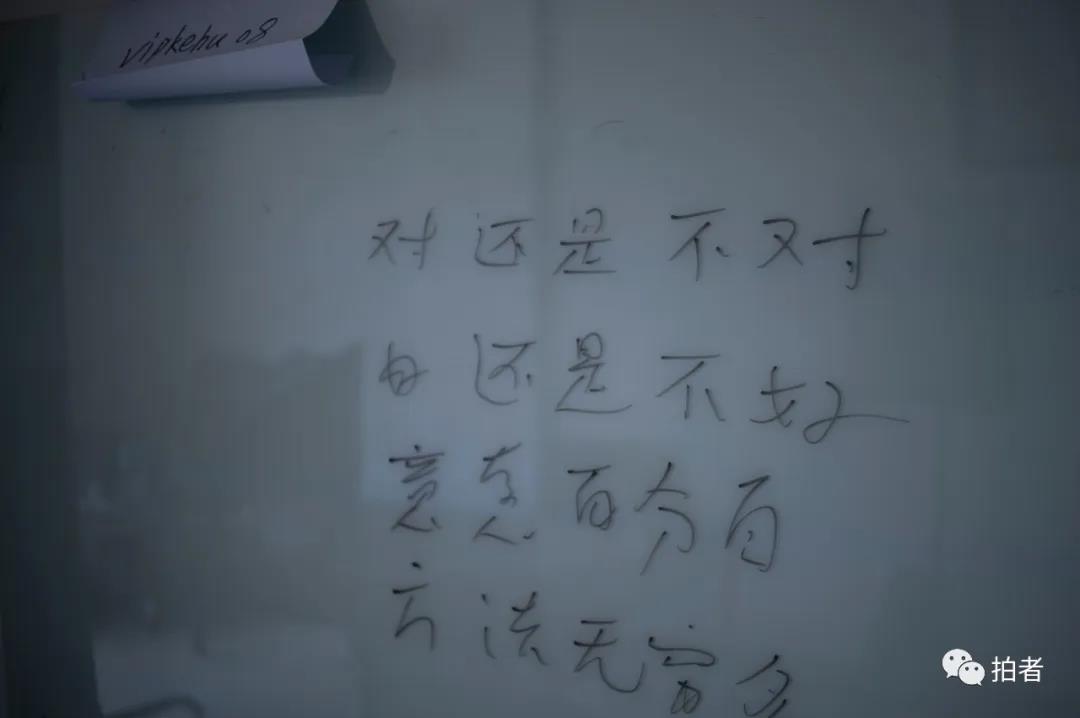 vipkehu 08
对还是不对
还是不好
意志百分百
方法无穷多
拍者